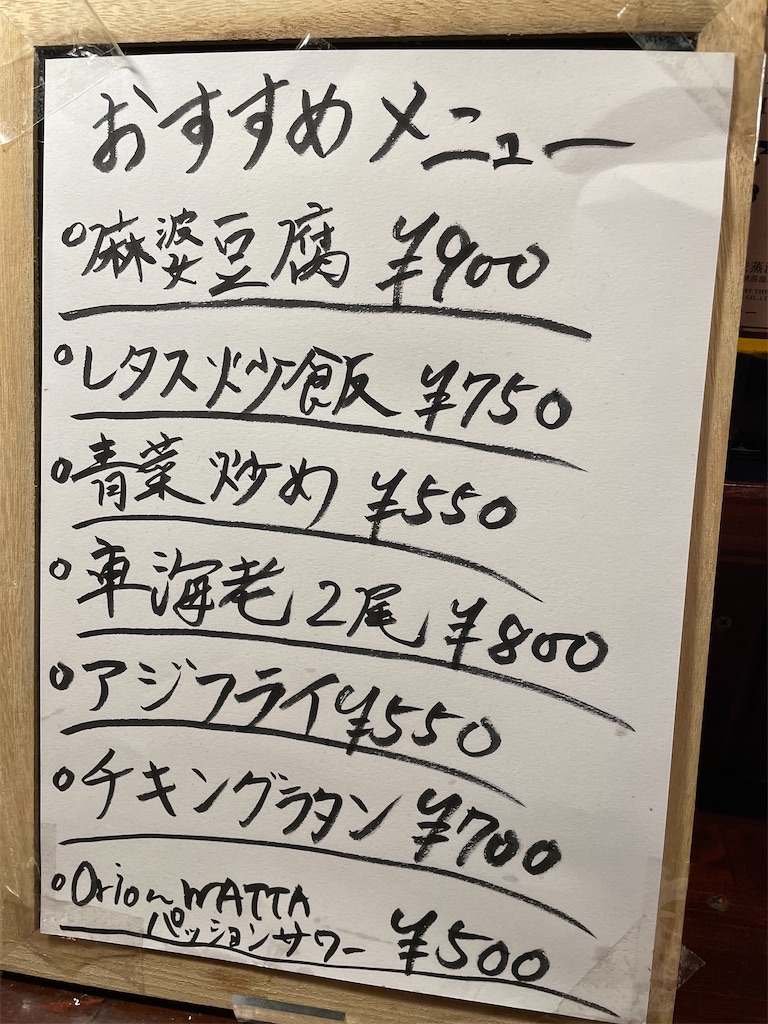 おすすめメニュー
○麻婆豆腐 ¥900
○レタス炒飯 ¥750
○青菜炒め ¥550
○車海老2尾 ¥800
○アジフライ¥550
○チキングラタン ¥700
○Orion WATTA
パッションサワー ¥500